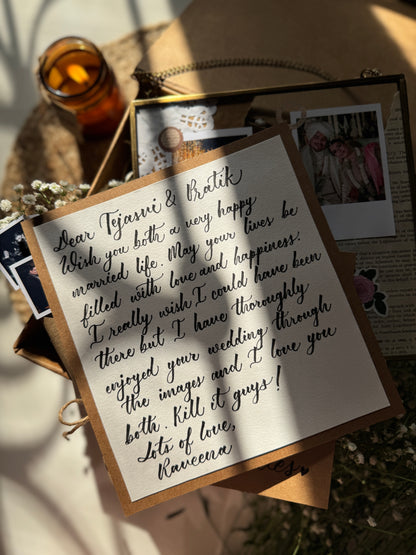 Dear Tejasvi & Pratik
Wish you both a very happy
married life. May your lives be
filled with love and happiness.
I really wish I could have been
there but I have thoroughly
enjoyed your wedding through
the images and I love you
both. Kill it guys!
Lots of love,
Raveena